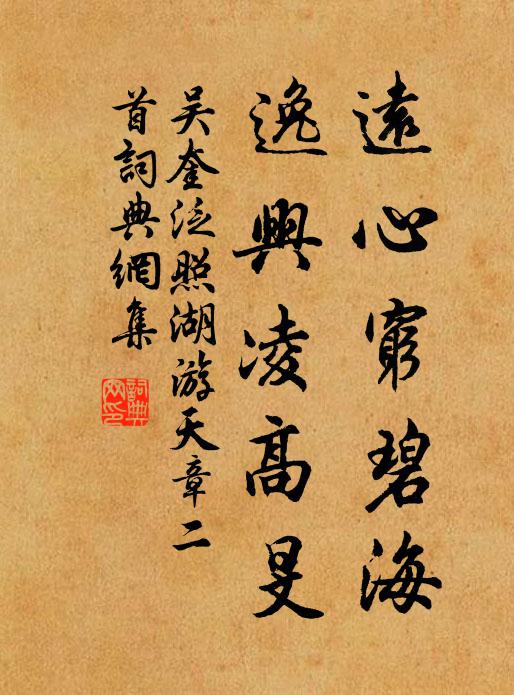 遠心窮碧海
逸興凌高旻
吳奎泛照湖游天章二
首詞典網集
詞典網印